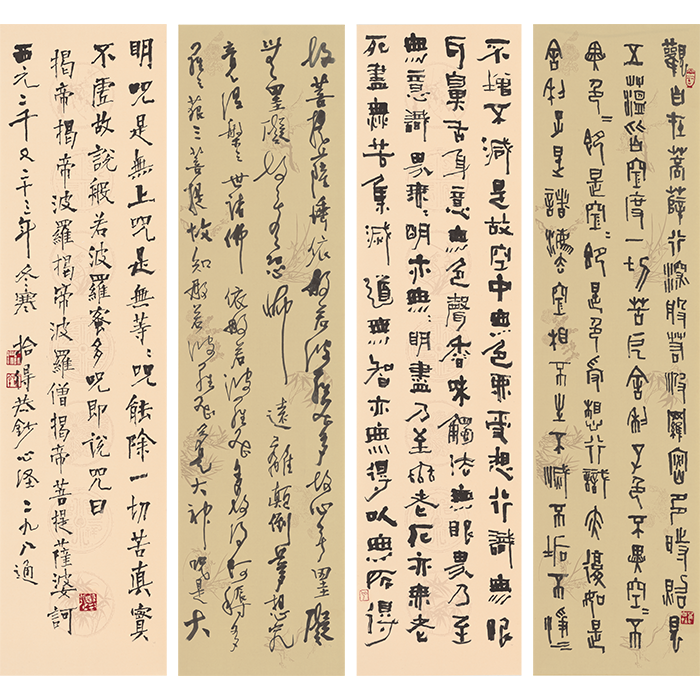 觀自在菩薩行深般若波羅蜜多時照見
五蘊皆空度一切苦厄舍利子色不異空〻不
異色〻即是空〻即是色受想行識亦復如是
舍利子是諸法空相不生不滅不垢不淨
不增不減是故空中無色無受想行識無眼
耳鼻舌身意無色聲香味觸法無眼界乃至
無意識界無〻明亦無〻明盡乃至無老死亦無老
死盡無苦集滅道無智亦無得以無所得
故菩提薩埵依般若波羅蜜多故心無罣礙
無罣礙故無有恐怖遠離顛倒夢想究
竟涅槃三世諸佛依般若波羅蜜多故得阿耨多
羅三藐三菩提故知般若波羅蜜多是大神咒是大
明咒是無上咒是無等〻咒能除一切苦真實
不虛故說般若波羅蜜多咒即說咒曰
揭帝揭帝波羅揭帝波羅僧揭帝菩提薩婆訶
西元二千又二十三年冬寒拾得恭鈔心經二九八通